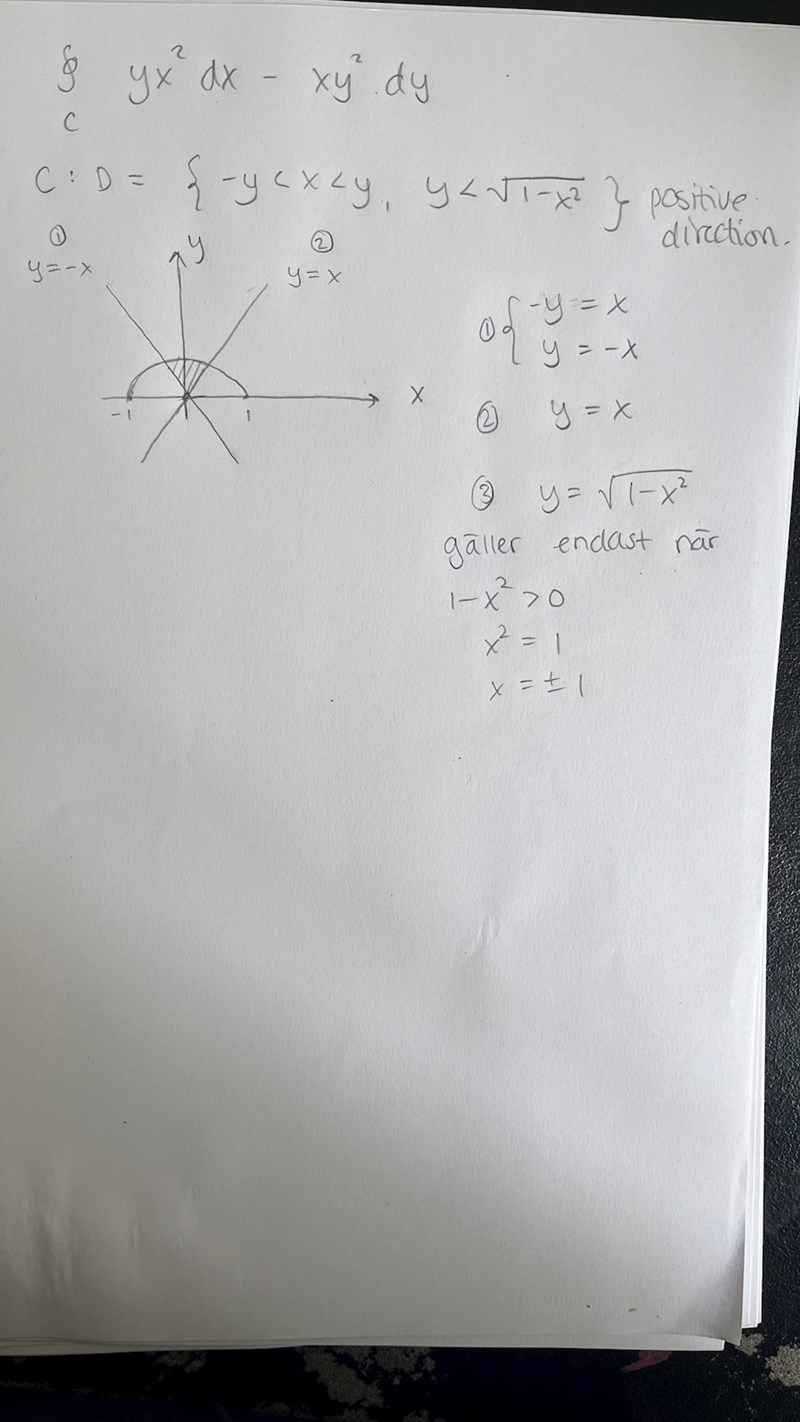 ∮ yx² dx - xy² dy
C
C : D = { -y < x < y, y < √1-x² } positive direction.
① y = -x
y
② y = x
x
-1
1
① { -y = x
y = -x
② y = x
③ y = √1-x²
gäller endast när
1-x² > 0
x² = 1
x = ± 1